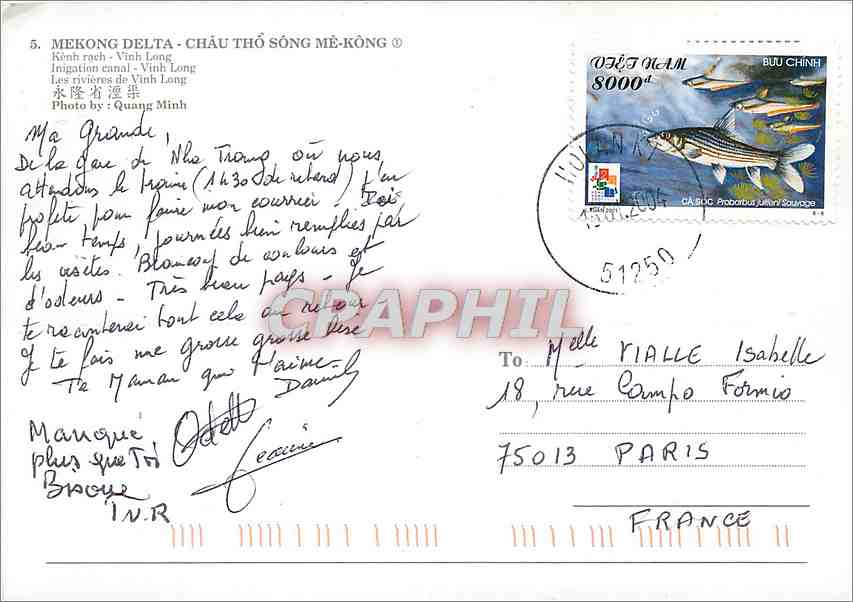 5. MEKONG DELTA - CHÂU THỔ SÔNG MÊ-KÔNG ①
Kênh rạch - Vĩnh Long
Inigation canal - Vinh Long
Les rivières de Vinh Long
永隆省湮渠
Photo by : Quang Minh
Ma Grande,
De la gare de Nha Trang où nous
attendons le train (1h30 de retard) j'en
profite pour faire mon courrier. Très
beau temps, journées bien remplies par
les visites. Beaucoup de couleurs et
d'odeurs - Très beau pays - Je
te raconterai tout cela au retour
Je te fais une grosse grosse bise
Ta Maman qui t'aime -
Manque
plus que Toi
Bisous
Odette
VIỆT NAM
8000đ
BƯU CHÍNH
CÁ SỌC Probarbus jullieni Sauvage
2004
51250
CRAPHIL
To : Melle VIALLE Isabelle
18, rue Campo Formio
75013 PARIS
FRANCE